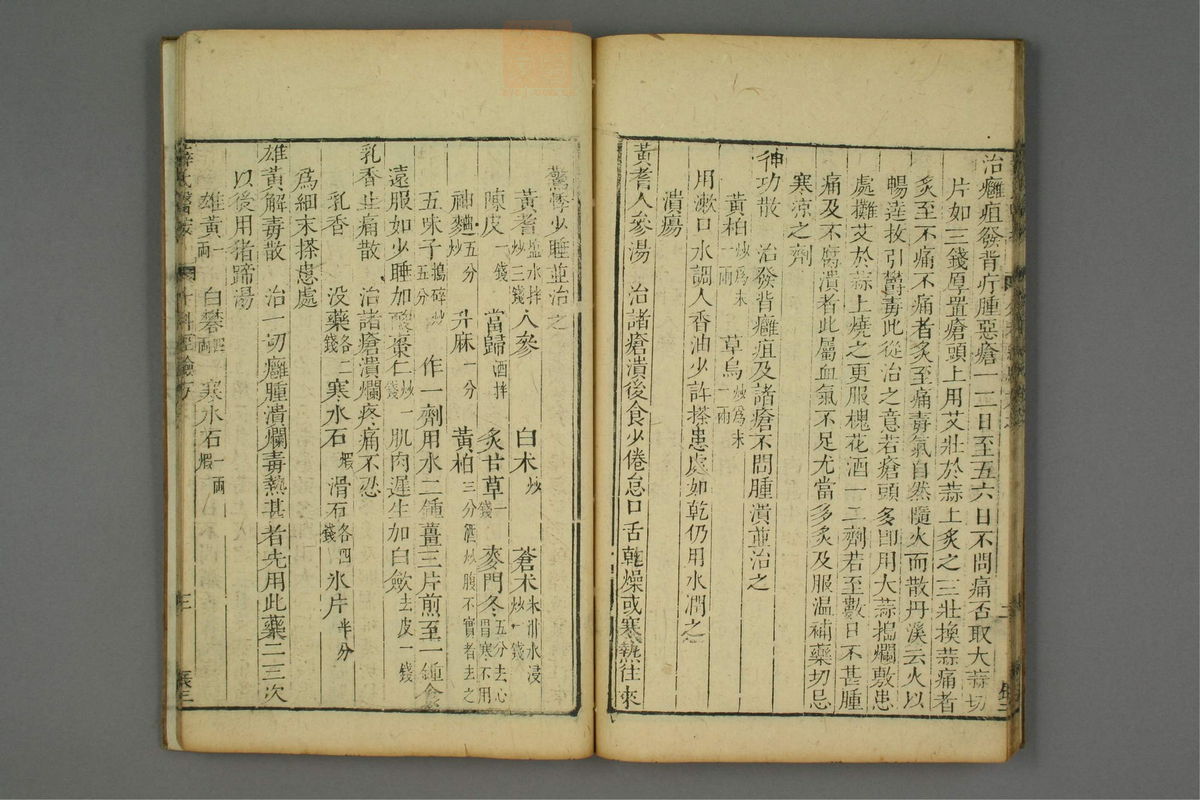 治癰疽發背疔腫惡瘡一二日至五六日不問痛否取大蒜切
片如三錢厚置瘡頭上用艾壯於蒜上炙之三壯換蒜痛者
炙至不痛不痛者炙至痛毒氣自然隨火而散丹溪云火以
暢達拔引欝毒此從治之意若瘡頭多卽用大蒜搗爛敷患
處攤艾於蒜上燒之更服槐花酒一二劑若至數日不甚腫
痛及不腐潰者此屬血氣不足尤當多炙及服温補藥切忌
寒凉之劑
神功散　治發背癰疽及諸瘡不問腫潰並治之
黃栢炒爲末一兩　草烏炒爲末一兩
用漱口水調入香油少許搽患處如乾仍用水潤之
潰瘍
黃耆人參湯　治諸瘡潰後食少倦怠口舌乾燥或寒熱往來
驚悸少睡並治之
黃耆塩水拌炒三錢　人參　白术炒　蒼术米泔水浸炒一錢
陳皮一錢　當歸酒拌　炙甘草一錢　麥門冬五分去心胃寒不用
神麯五分炒　升麻一分　黃栢三分酒炒腹不實者去之
五味子搗碎炒五分　作一劑用水二鍾薑三片煎至一鍾食
遠服如少睡加酸棗仁炒一錢　肌肉遲生加白歛去皮一錢
乳香止痛散　治諸瘡潰爛疼痛不忍
乳香　没藥各二錢　寒水石煆　滑石各四錢　氷片半分
爲細末搽患處
雄黃解毒散　治一切癰腫潰爛毒熱甚者先用此藥二三次
以後用猪蹄湯
雄黃一兩　白礬四兩　寒水石煆一兩
薛氏醫案　外科經驗方　三